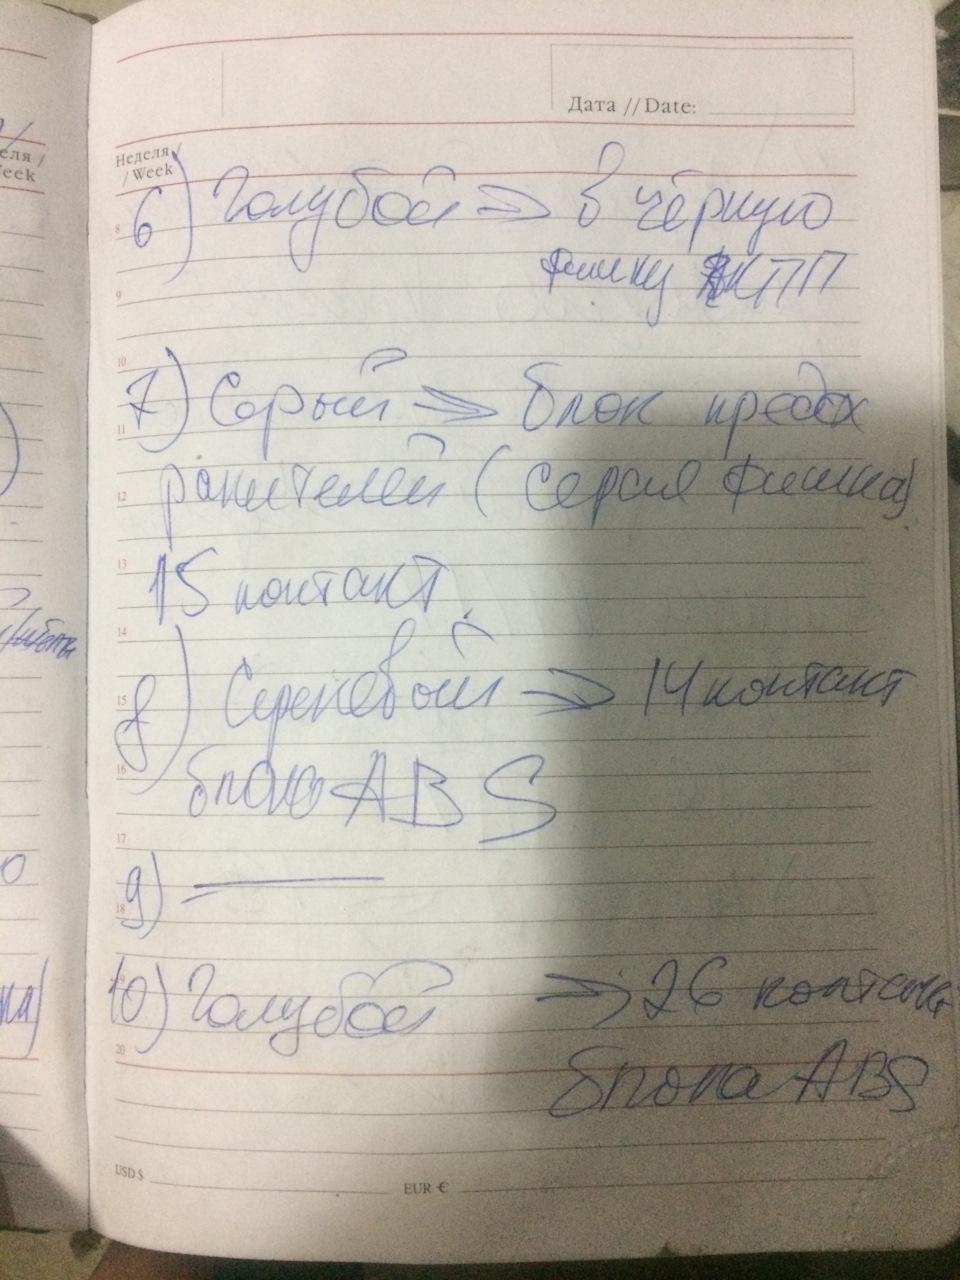 Дата // Date:
еля /
eek
Неделя /
/ Week
6) Голубой => в чёрную
8
фишку КПП
9
10
7) Серый => блок предох
11
ранителей (серая фишка)
12
13
15 контакт
14
8) Сереневый => 14 контакт
15
16
блока ABS
17
9) —
18
10) Голубой => 26 контакт
19
20
блока ABS
USD $
EUR €